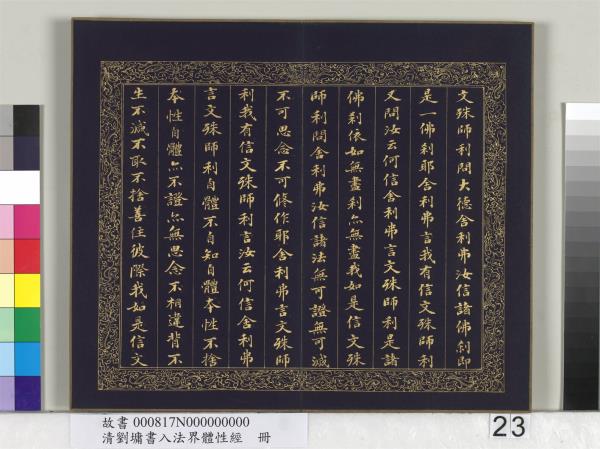 文殊師利問大德舍利弗汝信諸佛剎即
是一佛剎耶舍利弗言我有信文殊師利
又問汝云何信舍利弗言文殊師利是諸
佛剎依如無盡剎亦無盡我如是信文殊
師利問舍利弗汝信諸法無可證無可滅
不可思念不可修作耶舍利弗言文殊師
利我有信文殊師利言汝云何信舍利弗
言文殊師利自體不自知自體本性不捨
本性自體亦不證亦無思念不相違背不
生不滅不取不捨善住彼際我如是信文
故書 000817N000000000
清劉墉書入法界體性經 冊
23